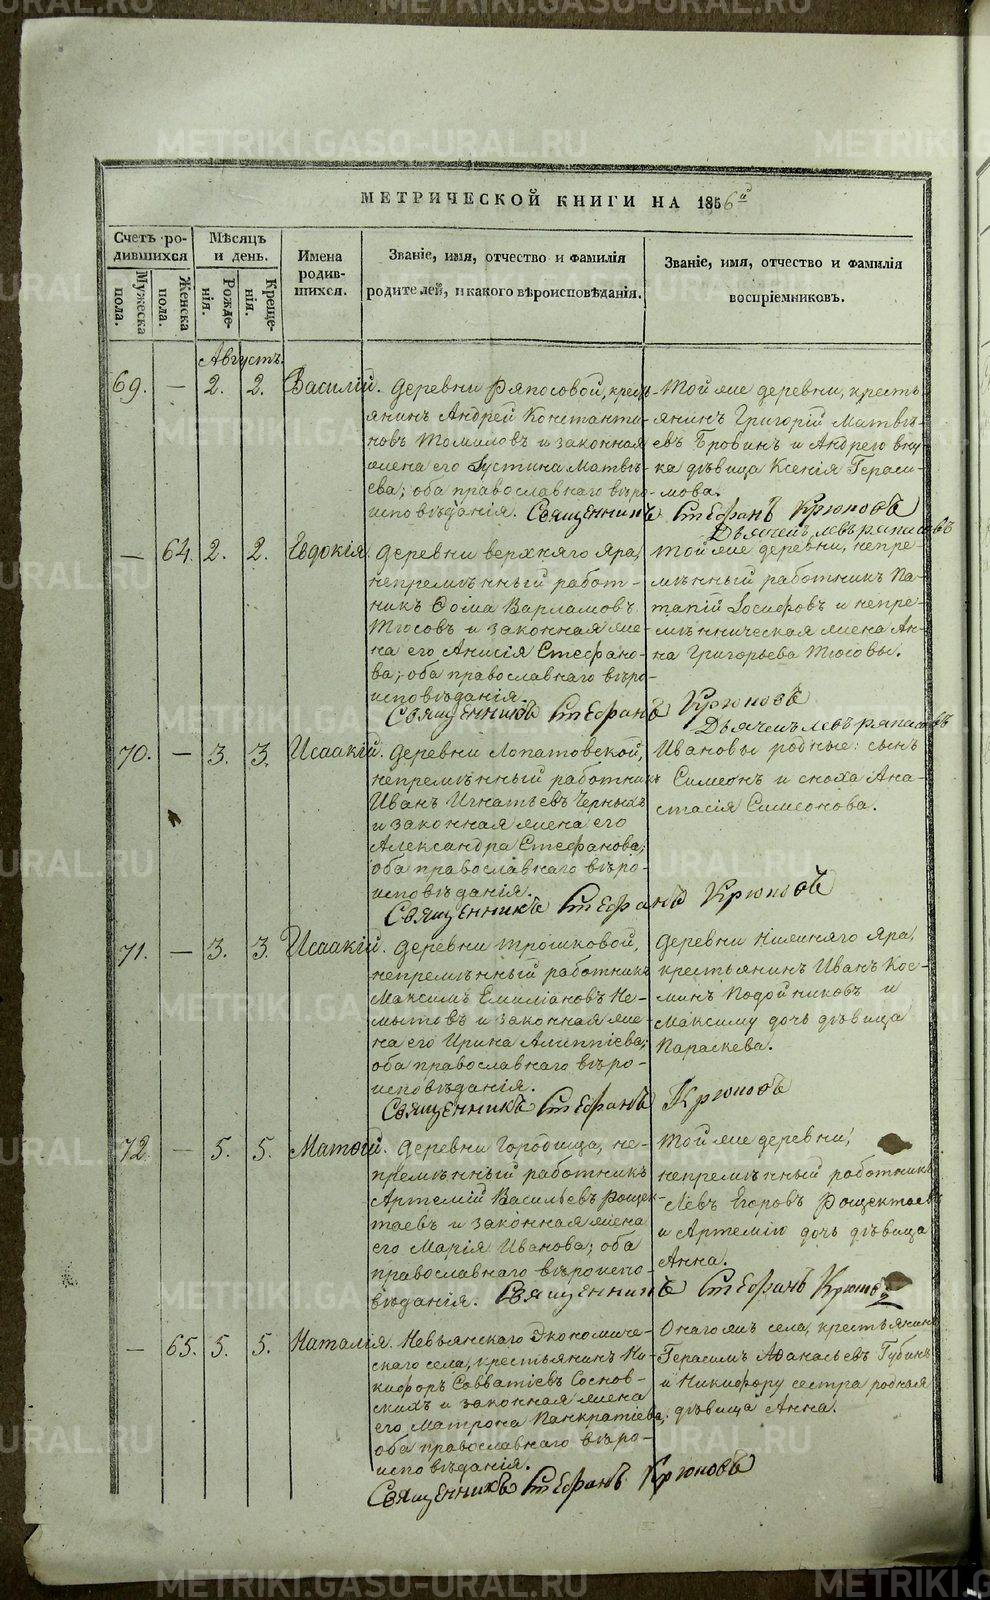 МЕТРИЧЕСКОЙ КНИГИ НА 1856й
Счетъ ро-
дившихся
Мужеска пола.
Женска пола.
Мѣсяцъ
и день.
Рожде-
нія.
Креще-
нія.
Имена
родив-
шихся.
Званіе, имя, отчество и фамилія
родителей, и какого вѣроисповѣданія.
Званіе, имя, отчество и фамилія
воспріемниковъ.
Августъ.
69. — 2. 2. Василій. Деревни Ряпосовой, кресть-
янинъ Андрей Константи-
новъ Томиловъ и законная
жена его Іустина Матвѣ-
ева; оба православнаго вѣро-
исповѣданія.
Той же деревни, кресть-
янинъ Григорій Матвѣ-
евъ Бровинъ и Андрею вну-
ка дѣвица Ксенія Гераси-
мова.
Священникъ Стефанъ Крюковъ
Дьячекъ Левъ
— 64. 2. 2. Евдокія. Деревни верхняго Яра,
непремѣнный работ-
никъ Ѳома Варламовъ
Тюсовъ и законная же-
на его Анисія Стефано-
ва; оба православнаго вѣро-
исповѣданія.
Той же деревни, непре-
мѣнный работникъ По-
тапій Іосифовъ и непре-
мѣнническая жена Ан-
на Григорьева Тюсовы.
Священникъ Стефанъ Крюковъ
Дьячекъ Левъ
70. — 3. 3. Исаакій. Деревни Лопатовской,
непремѣнный работникъ
Иванъ Игнатьевъ Черныхъ
и законная жена его
Александра Стефанова;
оба православнаго вѣро-
исповѣданія.
Ивановы родные: сынъ
Симеонъ и сноха Ана-
стасія Симеонова.
Священникъ Стефанъ Крюковъ
71. — 3. 3. Исаакій. Деревни Трошковой,
непремѣнный работникъ
Максимъ Емиліановъ Не-
мытовъ и законная же-
на его Ирина Алиппіева;
оба православнаго вѣро-
исповѣданія.
Деревни Нижняго Яра,
крестьянинъ Иванъ Кос-
минъ Подойниковъ и
Максиму дочь дѣвица
Параскева.
Священникъ Стефанъ Крюковъ
72. — 5. 5. Матѳій. Деревни Городища, не-
премѣнный работникъ
Артемій Васильевъ Рощек-
таевъ и законная жена
его Марія Иванова; оба
православнаго вѣроиспо-
вѣданія.
Той же деревни,
непремѣнный работникъ
Левъ Егоровъ Рощектаевъ
и Артемію дочь дѣвица
Анна.
Священникъ Стефанъ Крюковъ
— 65. 5. 5. Наталія. Невьянскаго Экономиче-
скаго села, крестьянинъ Ни-
кифоръ Савватіевъ Соснов-
скихъ и законная жена
его Матрона Панкратіева;
оба православнаго вѣро-
исповѣданія.
Онаго жъ села, крестьянинъ
Герасимъ Аѳанасьевъ Губинъ
и Никифору сестра родная
дѣвица Анна.
Священникъ Стефанъ Крюковъ
METRIKI.GASO-URAL.RU